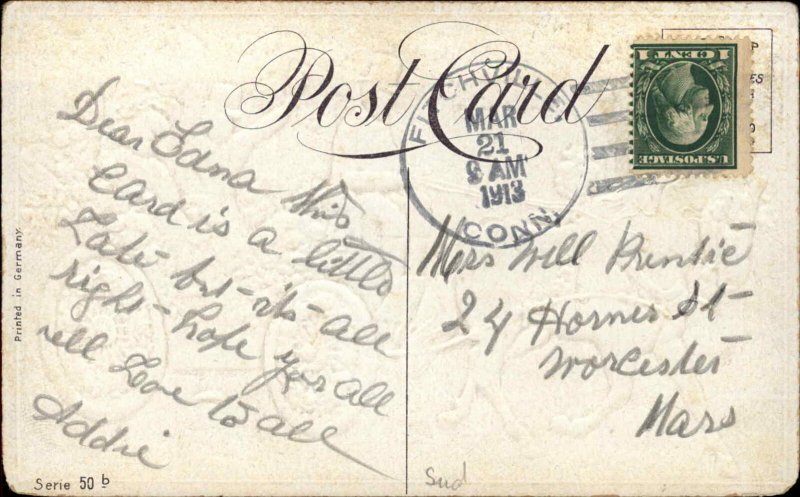 Post Card
FITCHVILLE
MAR
21
9 AM
1913
CONN.
1 CENT 1
U.S. POSTAGE
Dear Edna this
Card is a little
Late but its all
right hope you all
well Love to all
Addie
Mrs Will
24 St
Worcester
Mass
Printed in Germany
Serie 50 b